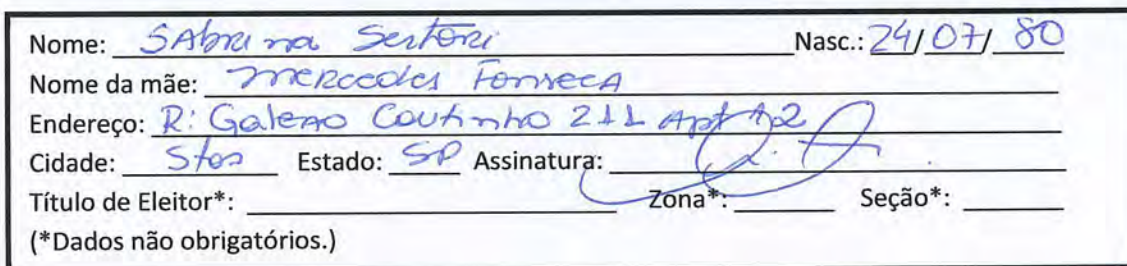 Nome: SAbrina Sertori Nasc.: 24/07/80
Nome da mãe: Mercedes Fonseca
Endereço: R: Galeno Coutinho 211 Apt 12
Cidade: Stos Estado: SP Assinatura:
Título de Eleitor*: Zona*: Seção*:
(*Dados não obrigatórios.)